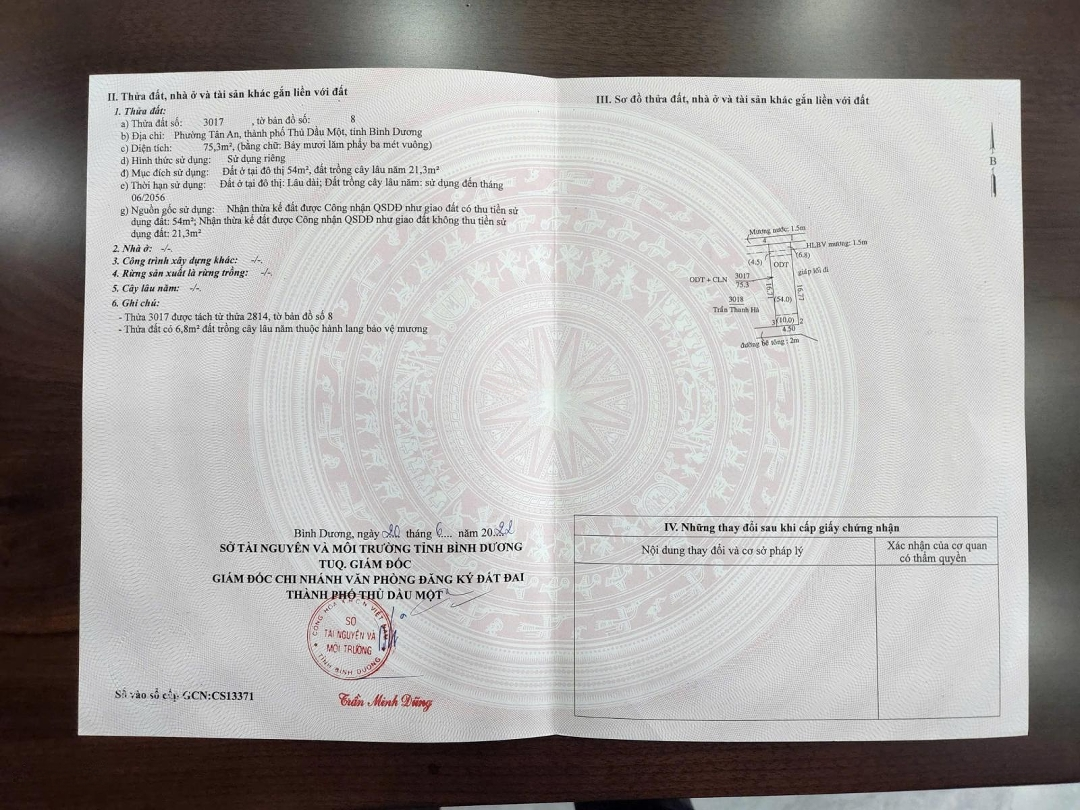 II. Thửa đất, nhà ở và tài sản khác gắn liền với đất
1. Thửa đất:
a) Thửa đất số: 3017 , tờ bản đồ số: 8
b) Địa chỉ: Phường Tân An, thành phố Thủ Dầu Một, tỉnh Bình Dương
c) Diện tích: 75,3m², (bằng chữ: Bảy mươi lăm phẩy ba mét vuông)
d) Hình thức sử dụng: Sử dụng riêng
đ) Mục đích sử dụng: Đất ở tại đô thị 54m², đất trồng cây lâu năm 21,3m²
e) Thời hạn sử dụng: Đất ở tại đô thị: Lâu dài; Đất trồng cây lâu năm: sử dụng đến tháng
06/2056
g) Nguồn gốc sử dụng: Nhận thừa kế đất được Công nhận QSDĐ như giao đất có thu tiền sử
dụng đất: 54m²; Nhận thừa kế đất được Công nhận QSDĐ như giao đất không thu tiền sử
dụng đất: 21,3m²
2. Nhà ở: -/-.
3. Công trình xây dựng khác: -/-.
4. Rừng sản xuất là rừng trồng: -/-.
5. Cây lâu năm: -/-.
6. Ghi chú:
- Thửa 3017 được tách từ thửa 2814, tờ bản đồ số 8
- Thửa đất có 6,8m² đất trồng cây lâu năm thuộc hành lang bảo vệ mương
Bình Dương, ngày 20 tháng 6... năm 2022
SỞ TÀI NGUYÊN VÀ MÔI TRƯỜNG TỈNH BÌNH DƯƠNG
TUQ. GIÁM ĐỐC
GIÁM ĐỐC CHI NHÁNH VĂN PHÒNG ĐĂNG KÝ ĐẤT ĐAI
THÀNH PHỐ THỦ DẦU MỘT
CỘNG HÒA X.H.C.N VIỆT NAM
SỞ
TÀI NGUYÊN VÀ
MÔI TRƯỜNG
TỈNH BÌNH DƯƠNG
Trần Minh Dũng
Số vào sổ cấp GCN:CS13371
III. Sơ đồ thửa đất, nhà ở và tài sản khác gắn liền với đất
B
Mương nước: 1.5m
4 1
HLBV mương: 1.5m
(6.8)
(4.5) ODT
giáp lối đi
ODT + CLN 3017
75.3
16.71
16.77
(54.0)
3018
Trần Thanh Hà
3 (10.0) 2
4.50
đường bê tông : 2m
IV. Những thay đổi sau khi cấp giấy chứng nhận
Nội dung thay đổi và cơ sở pháp lý
Xác nhận của cơ quan
có thẩm quyền